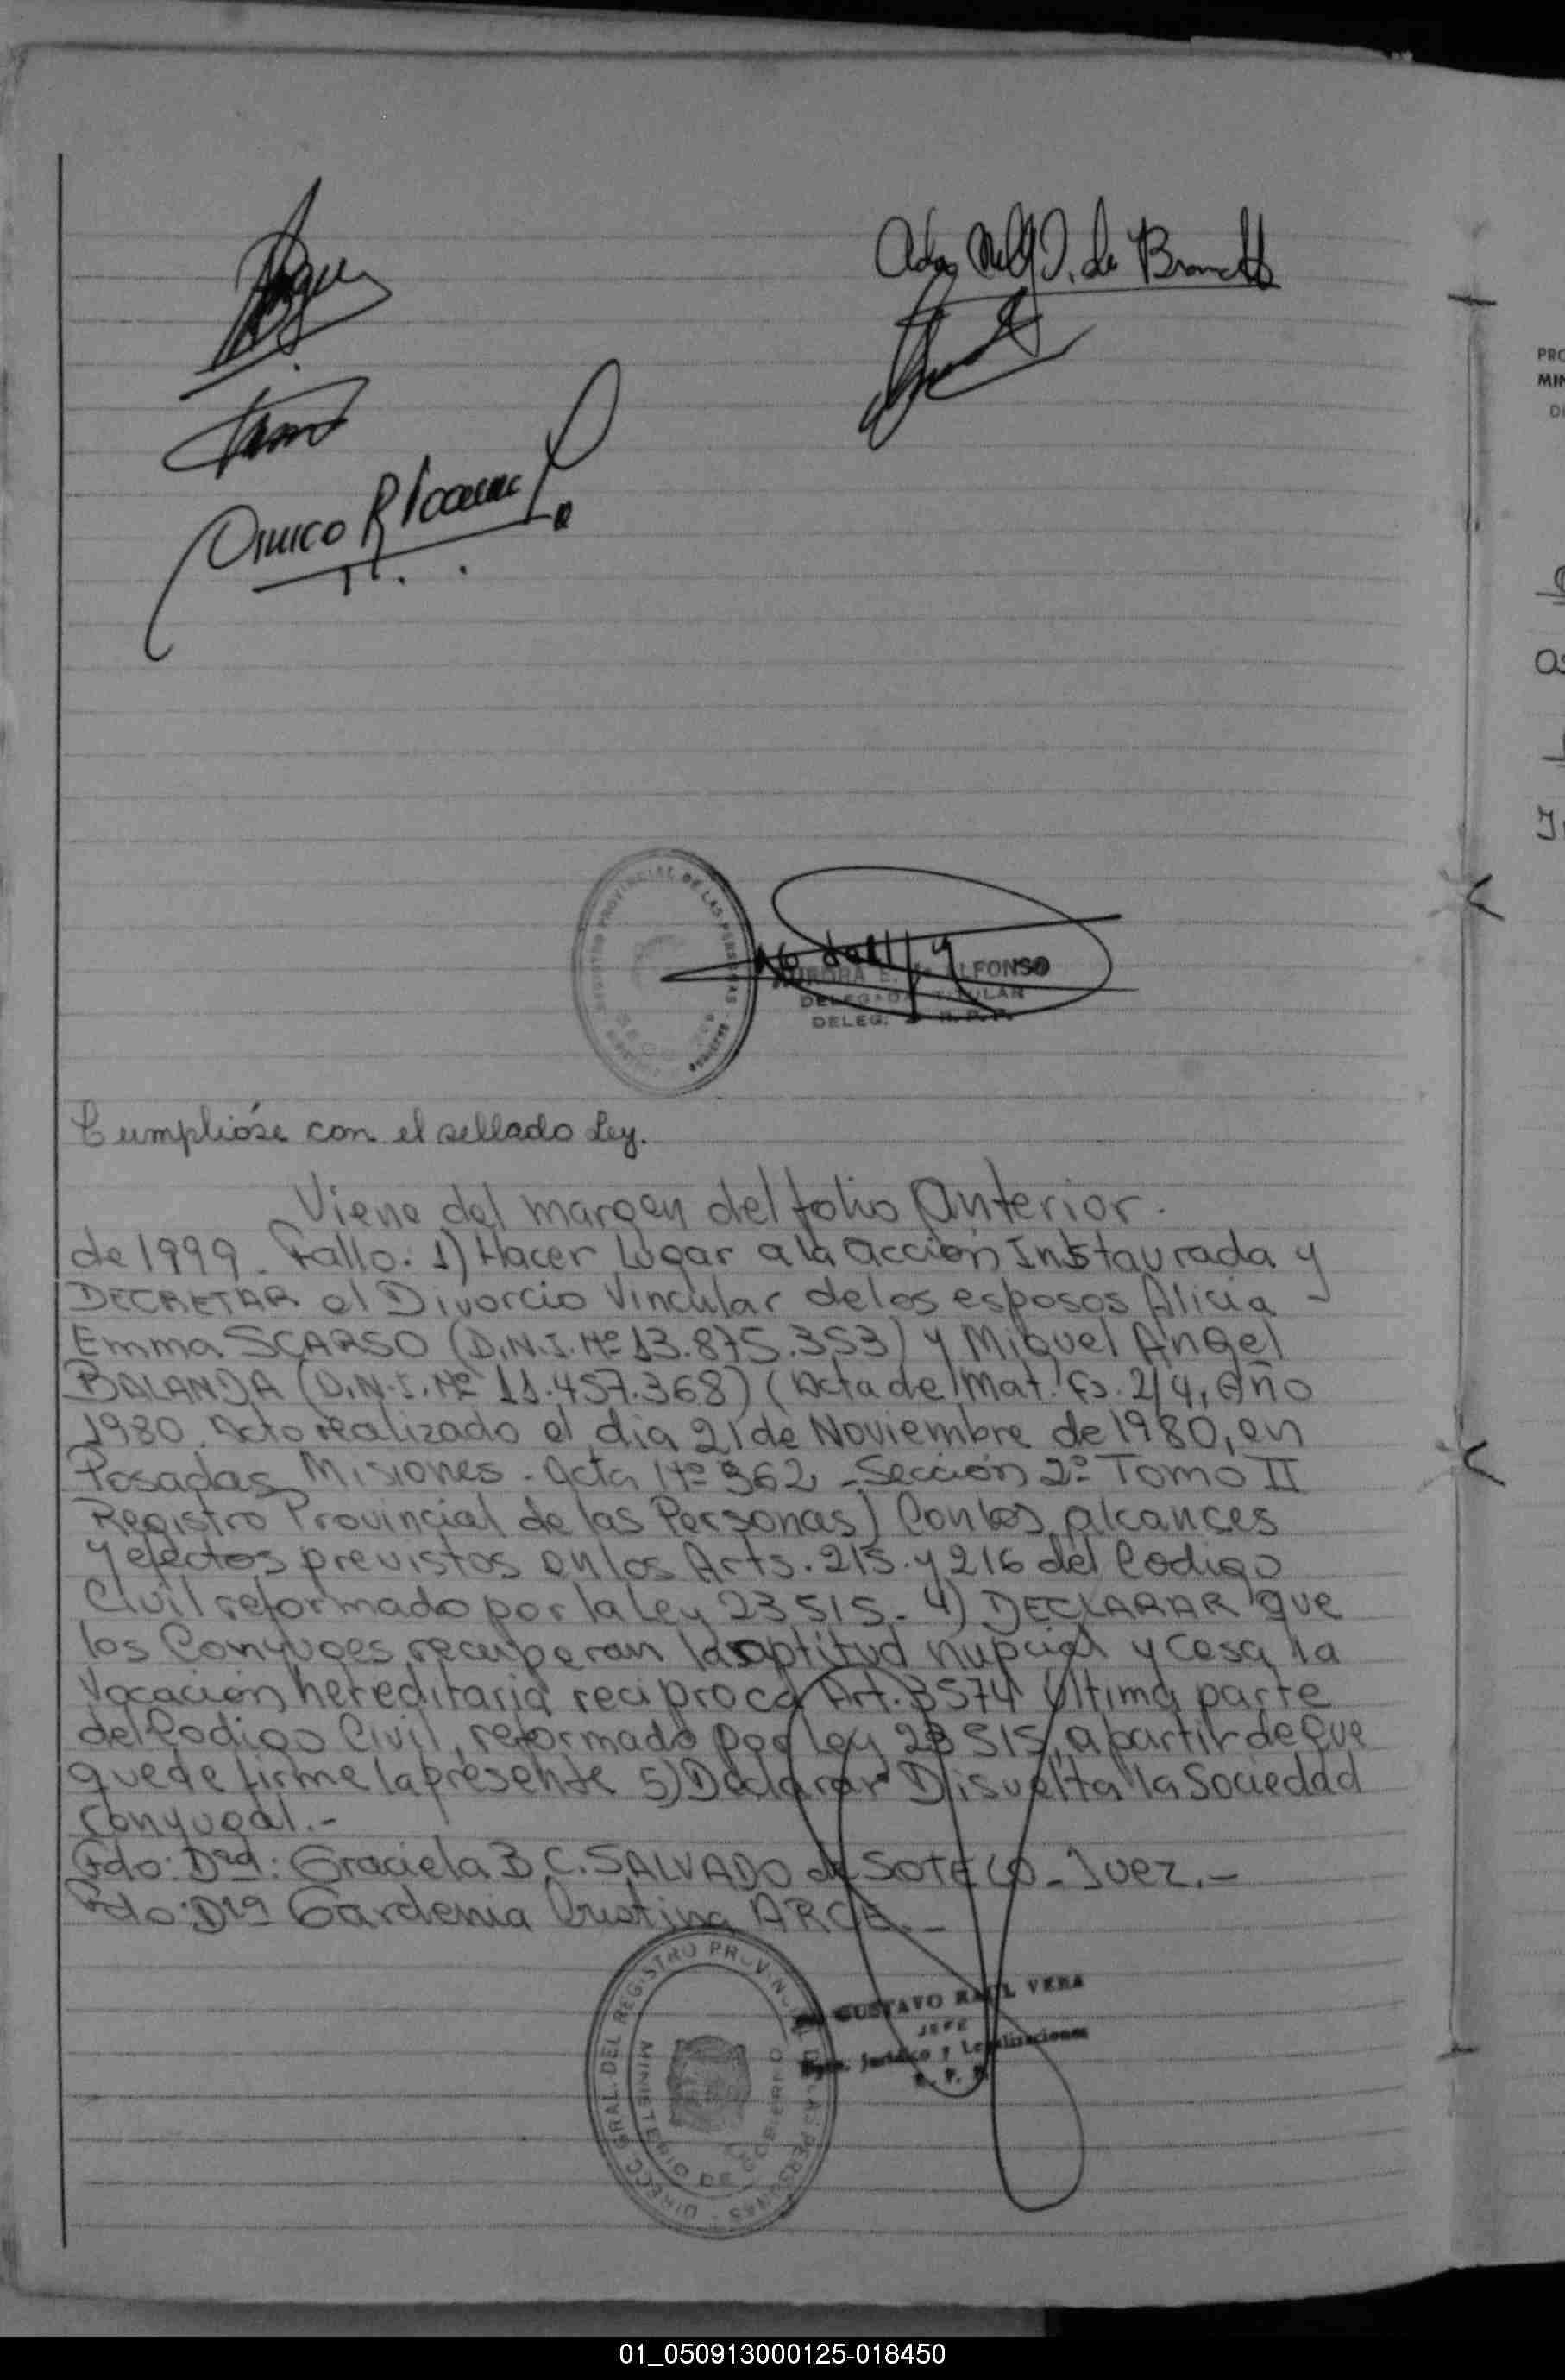 Cumplióse con el sellado Ley.
Viene del margen del folio Anterior.
de 1999. Fallo: 1) Hacer Lugar a la acción Instaurada y
DECRETAR el Divorcio Vincular de los esposos Alicia
Emma SCARSO (D.N.I. Nº 13.875.353) y Miguel Angel
BALANDA (D.N.I. Nº 11.457.368) (Acta de Mat. Fs. 2/4, Año
1980. Acto realizado el dia 21 de Noviembre de 1980, en
Posadas Misiones - Acta Nº 362 - Sección 2º Tomo II
Registro Provincial de las Personas) Con los alcances
y efectos previstos en los Arts. 215 y 216 del Codigo
Civil reformado por la Ley 23515 - 4) DECLARAR que
los Conyuges recuperan la aptitud nupcial y cesa la
Vocacion hereditaria reciproca Art. 3574 Ultima parte
del Codigo Civil, reformado por Ley 23515, a partir de que
quede firme la presente 5) Declarar Disuelta la Sociedad
Conyugal.-
Fdo: Dra: Graciela B. C. SALVADO de SOTELO - Juez.-
Fdo: Dra Gardenia Cristina ARCE.-
DIRECC. GRAL. DEL REGISTRO PROVINCIAL DE LAS PERSONAS
MINISTERIO DE GOBIERNO
GUSTAVO RAUL VERA
JEFE
Dpto. Jurídico y Legalizaciones
R. P. P.
01_050913000125-018450